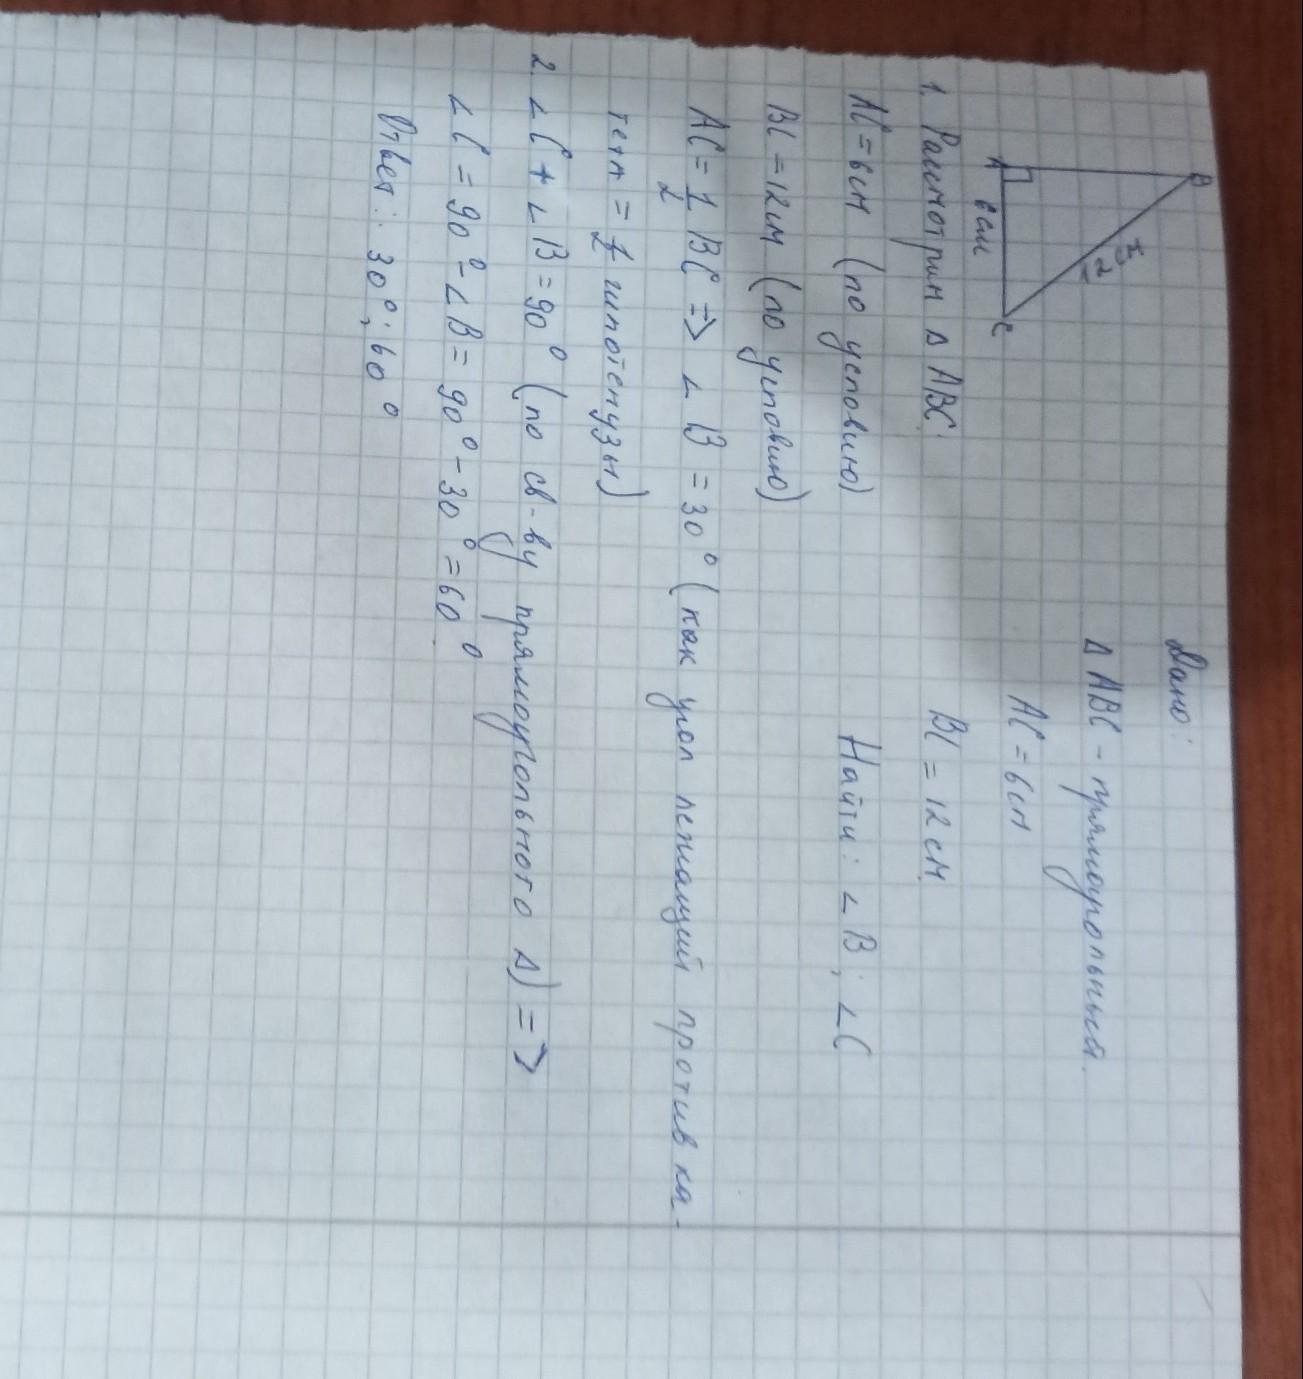 B
12 см
A
6 см
C
Дано:
Δ ABC - прямоугольный.
AC = 6см
BC = 12 см.
Найти: ∠B; ∠C
1. Рассмотрим Δ ABC:
AC = 6см (по условию)
BC = 12см (по условию)
AC = 1/2 BC => ∠ B = 30° (как угол лежащий против ка-
тета = 1/2 гипотенузы)
2. ∠C + ∠B = 90° (по св-ву прямоугольного Δ) =>
∠C = 90° - ∠B = 90° - 30° = 60°.
Ответ: 30°; 60°